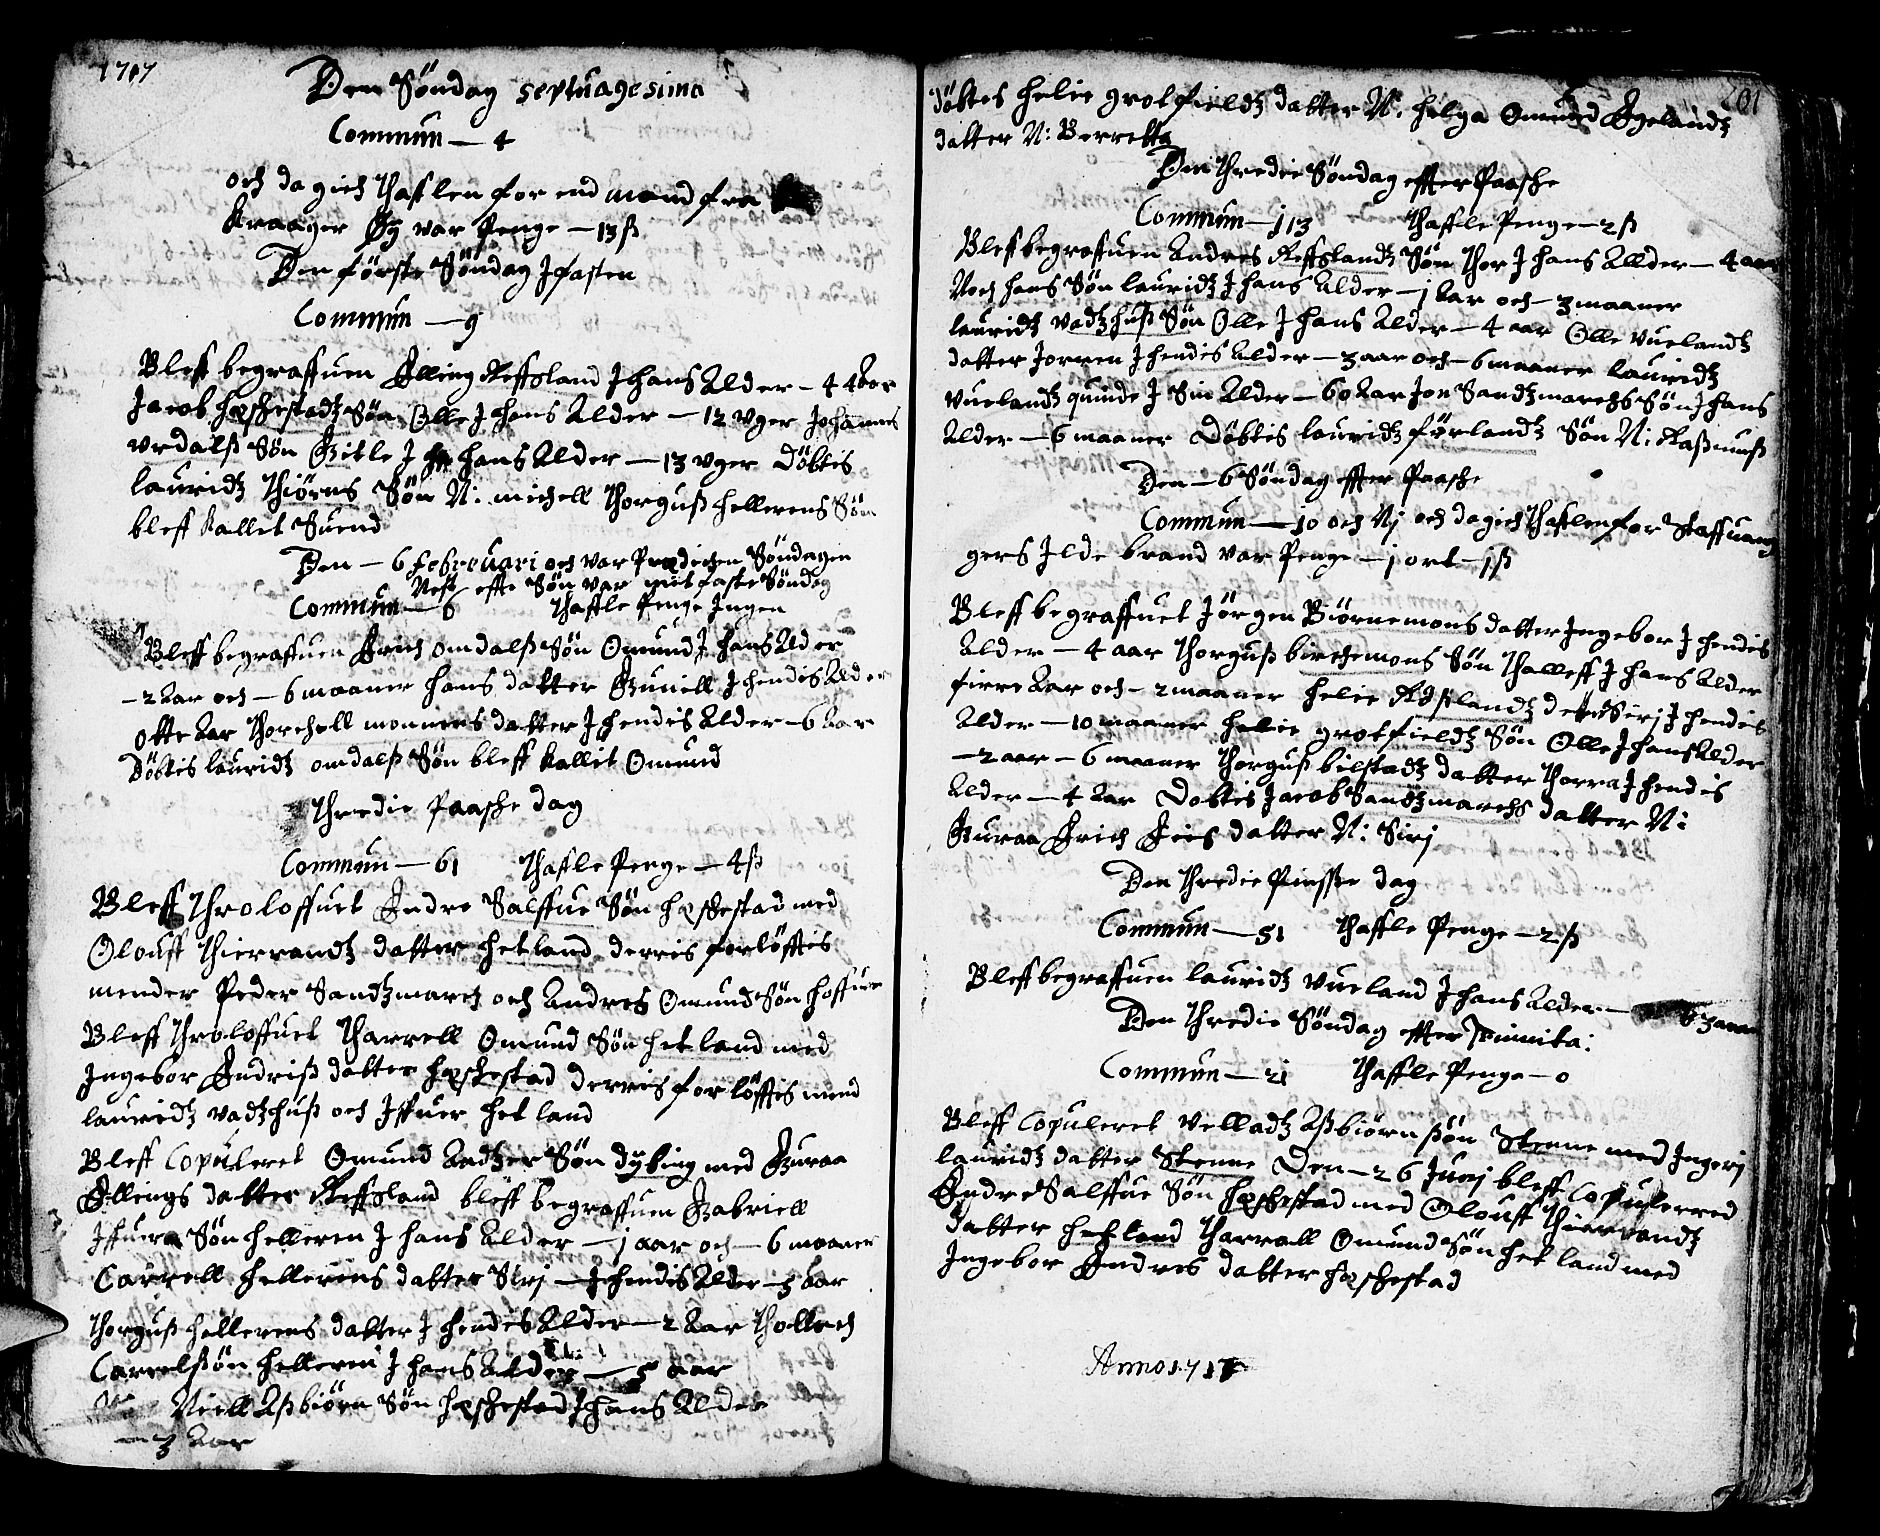 1717
Den Söndag septuagesima
Commun — 4
och da gich thafflen for end mand fra
Kraager Øy var Penge — 13 ß
Den förste Söndag J fasten
Commun — 9
Bleff begraffuen Elling Reffsland J hans Alder — 44 Aar
Jacob Hæskestadz Sön Olle J hans Alder — 12 Uger Johannes
Urdalß Sön Gitle J hans Alder — 13 uger Döbtis
lauridz Thiörns Sön N: michell Thorguß hellerens Sön
bleff kallet Suend
Den — 6 februari och var Predichen Söndagen
Nest effte Sön var mit faste Söndag
Commun — 6 Thaffle Penge Jngen
Bleff begraffuen Erich omdalß Sön Omund J hans Alder
— 2 Aar och — 6 maaner hans datter Guniell J hendis Alder
otte Aar Thorchell monnens datter J hendis Alder — 6 Aar
Döbtis lauridz omdalß Sön bleff kallit Omund
Thredie Paasche dag
Commun — 61 Thaffle Penge — 4 ß
Bleff Throloffuet Endre Salffue Sön Hæskestad med
Olouff Thierrandz datter Hetland derris forlöfftis
mender Peder Sandzmarch och Andres Omund Sön Hoffue
Bleff Throloffuet Tharrell Omund Sön hetland med
Jngebor Endriß datter Hæskestad derris forlöfftis mend
lauridz vadzhuß och Jffuer Hetland
Bleff Copuleret Omund Aadzer Sön dybing med Guraa
Ellings datter Reffsland bleff begraffuen Gabriell
Jffuers Sön helleren J hans Alder — 1 aar och — 6 maaner
Carrell hellerens datter Sirj — J hendis Alder — 3 Aar
Thorguß hellerens datter J hendis Alder — 2 Aar Thollach
Carrelßön helleren J hans Alder — 5 aar
Niell Aßbiörn Sön Hæskestad J hans Alder
— 3 Aar
201
döbtes helie grotfieldz datter N: helga Omund Egelandz
datter N: Berretta
Den Thredie Söndag effter Paasche
Commun — 113 Thaffle Penge — 2 ß
Bleff begraffuen Andres Reffslandz Sön Thor J hans Allder — 4 aar
Noch hans Sön lauridz J hans Alder — 1 Aar och — 3 maaner
lauridz vadzhuß Sön Olle J hans Alder — 4 aar Olle Vuelandz
datter Jorren J hendis Alder — 3 aar och — 6 maaner lauridz
Vuelandz quinde J Sin Alder — 60 Aar Jon Sandzmarchs Sön J hans
Alder — 6 maaner Döbtis lauridz förlandz Sön N: Raßmuß
Den — 6 Söndag effter Paasche
Commun — 10 och Nj och da gich Thafflen for Staffuang
gers Jlde brand var Penge — 1 ort — 1 ß
Bleff begraffuet Jörgen Biörnemons datter Jngebor J hendis
Alder — 4 aar Thorguß birchemons Sön Thalleff J hans Alder
fiere Aar och — 2 maaner helie Røslandz datter Sirj J hendis
Alder — 10 maaner helie grotfieldz Sön Olle J hans Alder
— 2 aar — 6 maaner Thorguß bilstadz datter Thorra J hendis
Alder — 4 Aar Döbtis Jacob Sandzmarchs datter N:
Guraa Erich Eies datter N: Sirj
Den Thredie Pinsse dag
Commun — 51 Thaffle Penge — 2 ß
Bleff begraffuen lauridz Vueland J hans Alder — 63 aar
Den Thredie Söndag effter Trinnita:
Commun — 21 Thaffle Penge — 0
Bleff Copuleret Velladz Aßbiörn ßön Steene med Jngerj
lauridz datter Steene Den — 26 Junj bleff Copulerred
Endre Salffue Sön Hæskestad med Olouff Thierrandz
datter hetland Tharrall Omund Sön hetland med
Jngebor Endres datter Hæskestad
Anno 1717